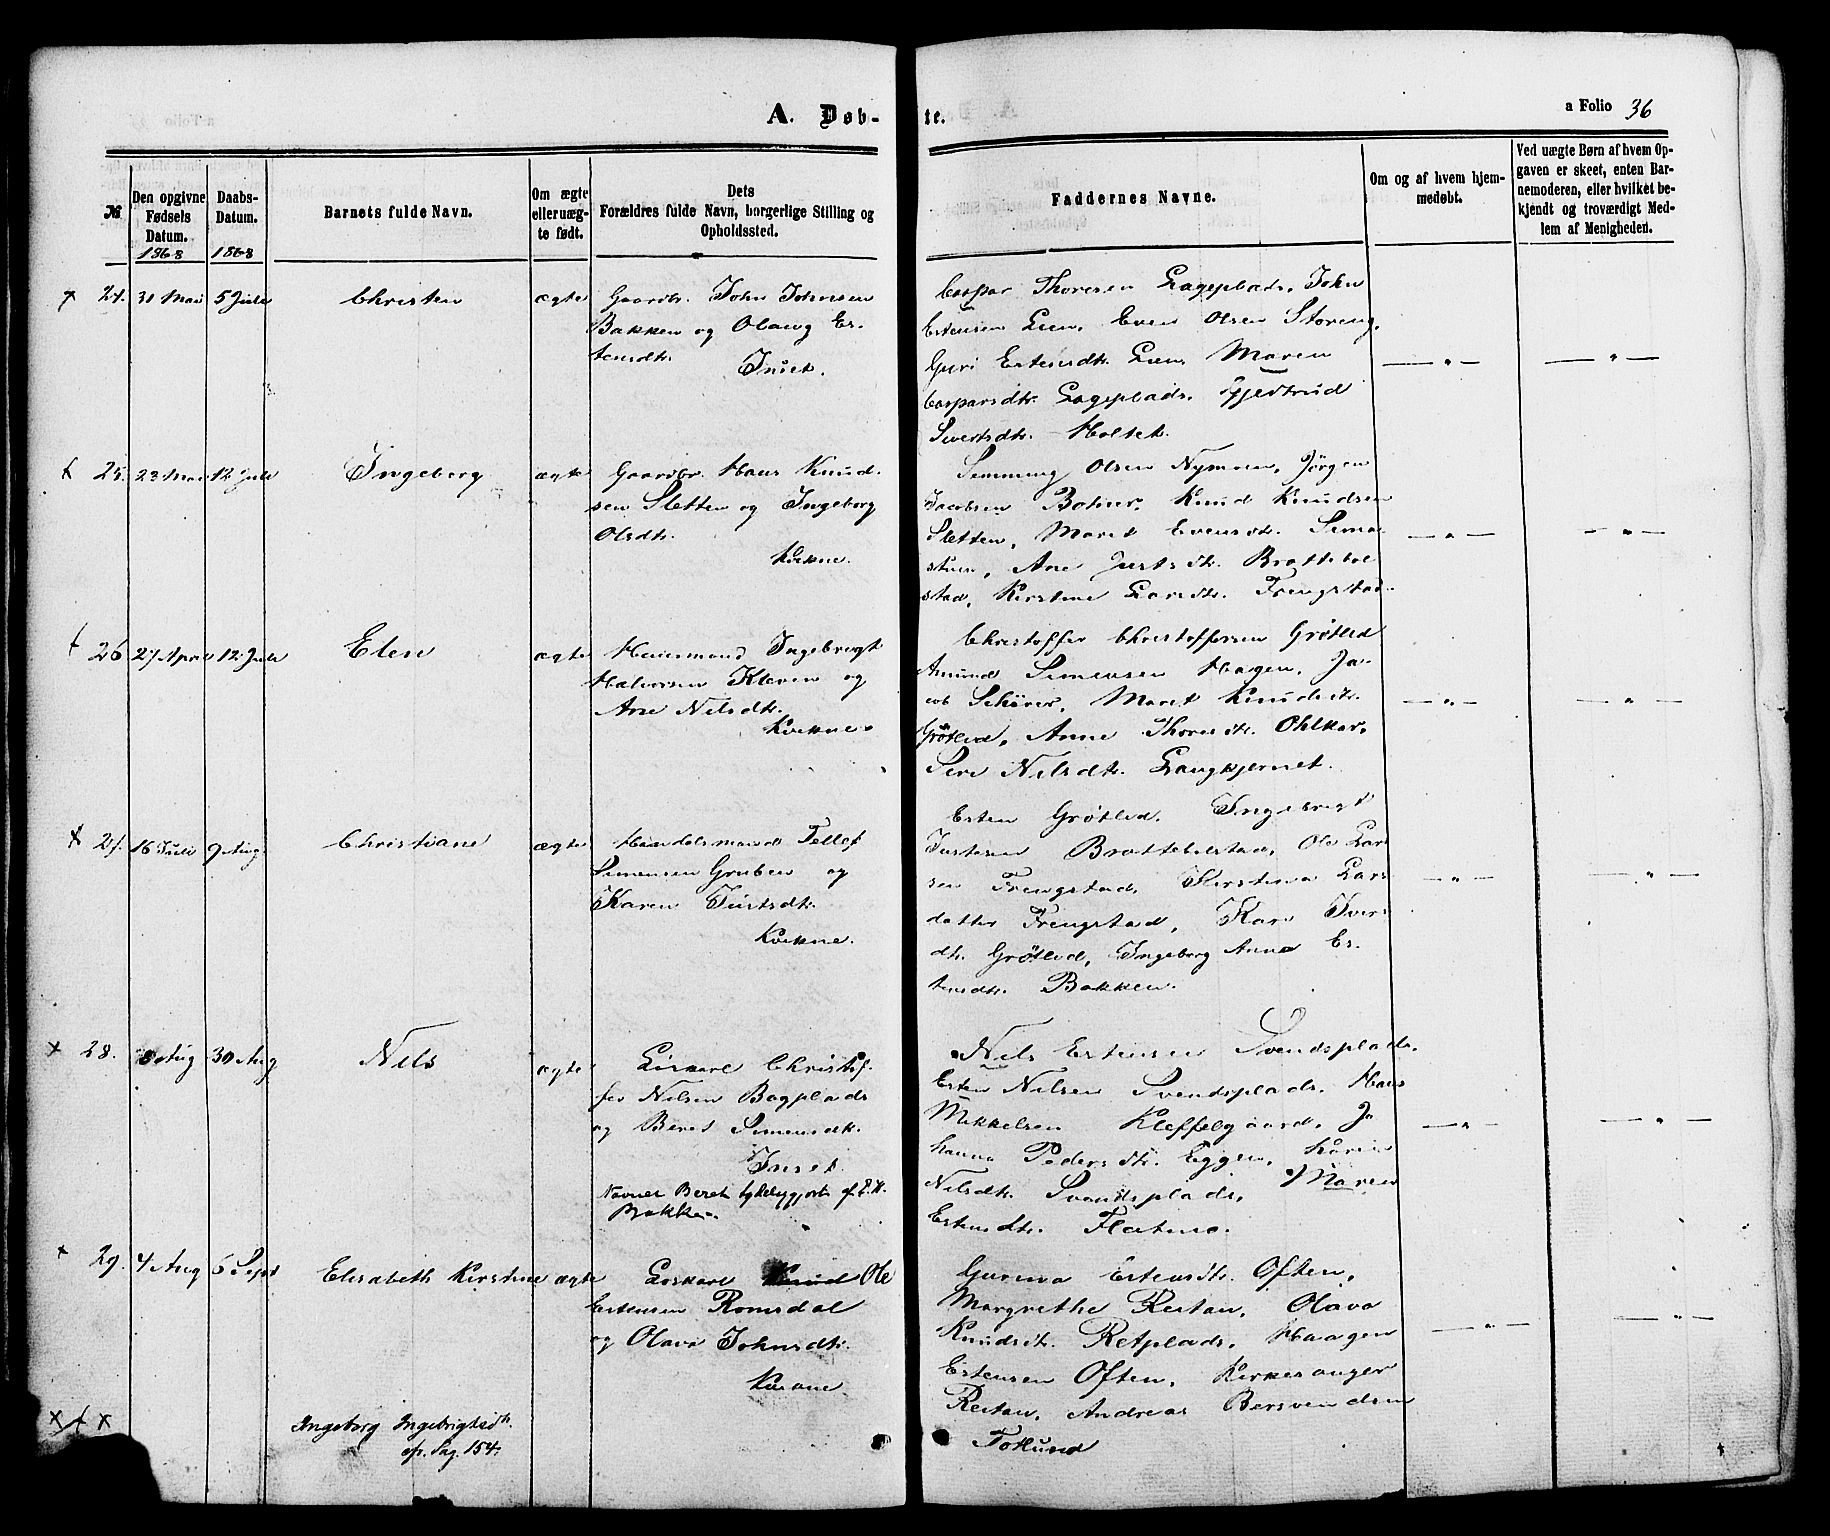 A. Døb-
te.
a Folio 36
№
Den opgivne Fødsels Datum. 1868
Daabs-Datum. 1868
Barnets fulde Navn.
Om ægte eller uæg-te født.
Dets Forældres fulde Navn, borgerlige Stilling og Opholdssted.
Faddernes Navne.
Om og af hvem hjem-medøbt.
Ved uægte Børn af hvem Op-gaven er skeet, enten Bar-nemoderen, eller hvilket be-kjendt og troværdigt Med-lem af Menigheden.
24. 31 Mai 5 Juli Christen ægte
Gaardbr. John Johnsen
Bakken og Olaug Es-
tensdtr.
Inset.
Caspar Thoresen Lageplads, John
Estensen Lien, Even Olsen Storeng,
Guri Estensdtr. Lien, Maren
Caspersdtr. Lageplads, Gjertrud
Sivertsdtr. Holtet.
25. 23 Mai 12 Juli Ingeborg ægte
Gaardbr. Hans Knud-
sen Sletten og Ingeborg
Olsdtr.
Kvikne.
Simming Olsen Nymoen, Jørgen
Jacobsen Bohrer, Knud Knudsen
Sletten, Maret Evensdtr. Simo-
stuen, Ane Justsdtr. Brattebøl-
stad, Kirstine Larsdtr. Frengstad.
26 27 April 12 Juli Elen ægte
Huusmand Ingebrigt
Halvorsen Kleven og
Ane Nilsdtr.
Kvikne.
Christoffer Christoffersen Grøtlid
Amund Simensen Hagen, Ja-
cob Schärer, Maret Knudsdtr.
Grøtlid, Anne Thoresdtr. Ohlkar,
Siri Nilsdtr. Langkjernet.
27. 16 Juli 9 Aug. Christiane ægte
Handelsmand Tellef
Simensen Gruben og
Karen Justsdtr.
Kvikne.
Esten Grøtlid, Ingebrigt
Justesen Brattebølstad, Ole Lar-
sen Frengstad, Kirstine Lars-
datter Frengstad, Kari Ivers-
dtr. Grøtlid, Ingeborg Anna Es-
tensdtr. Bakken.
28. 8 Aug 30 Aug Nils ægte
Løskarl Christof-
fer Nilsen Bagplads
og Beret Simensdtr.
Inset
Navnet Beret tydeliggjort af E.H.
Bakken.
Nils Estensen Svendsplads,
Esten Nilsen Svendsplads, Hans
Mikkelsen Kleffelgaard, Jo-
hanna Pedersdtr. Eggen, Karen
Nilsdtr. Svendsplads, Maren
Estensdtr. Flatmo.
29. 4 Aug 6 Sept Elisabeth Kirstine ægte
Løskarl Knud Ole
Estensen Romsdal
og Olava Johnsdtr.
Kvikne
Gunnva Estensdtr. Often,
Margrethe Reitan, Olava
Knudsdtr. Retplads, Haagen
Estensen Often, Kirkesanger
Reitan, Andreas Bersvendsen
Foklund
Ingeborg Ingebrigtsdtr.
op. Pag. 154.